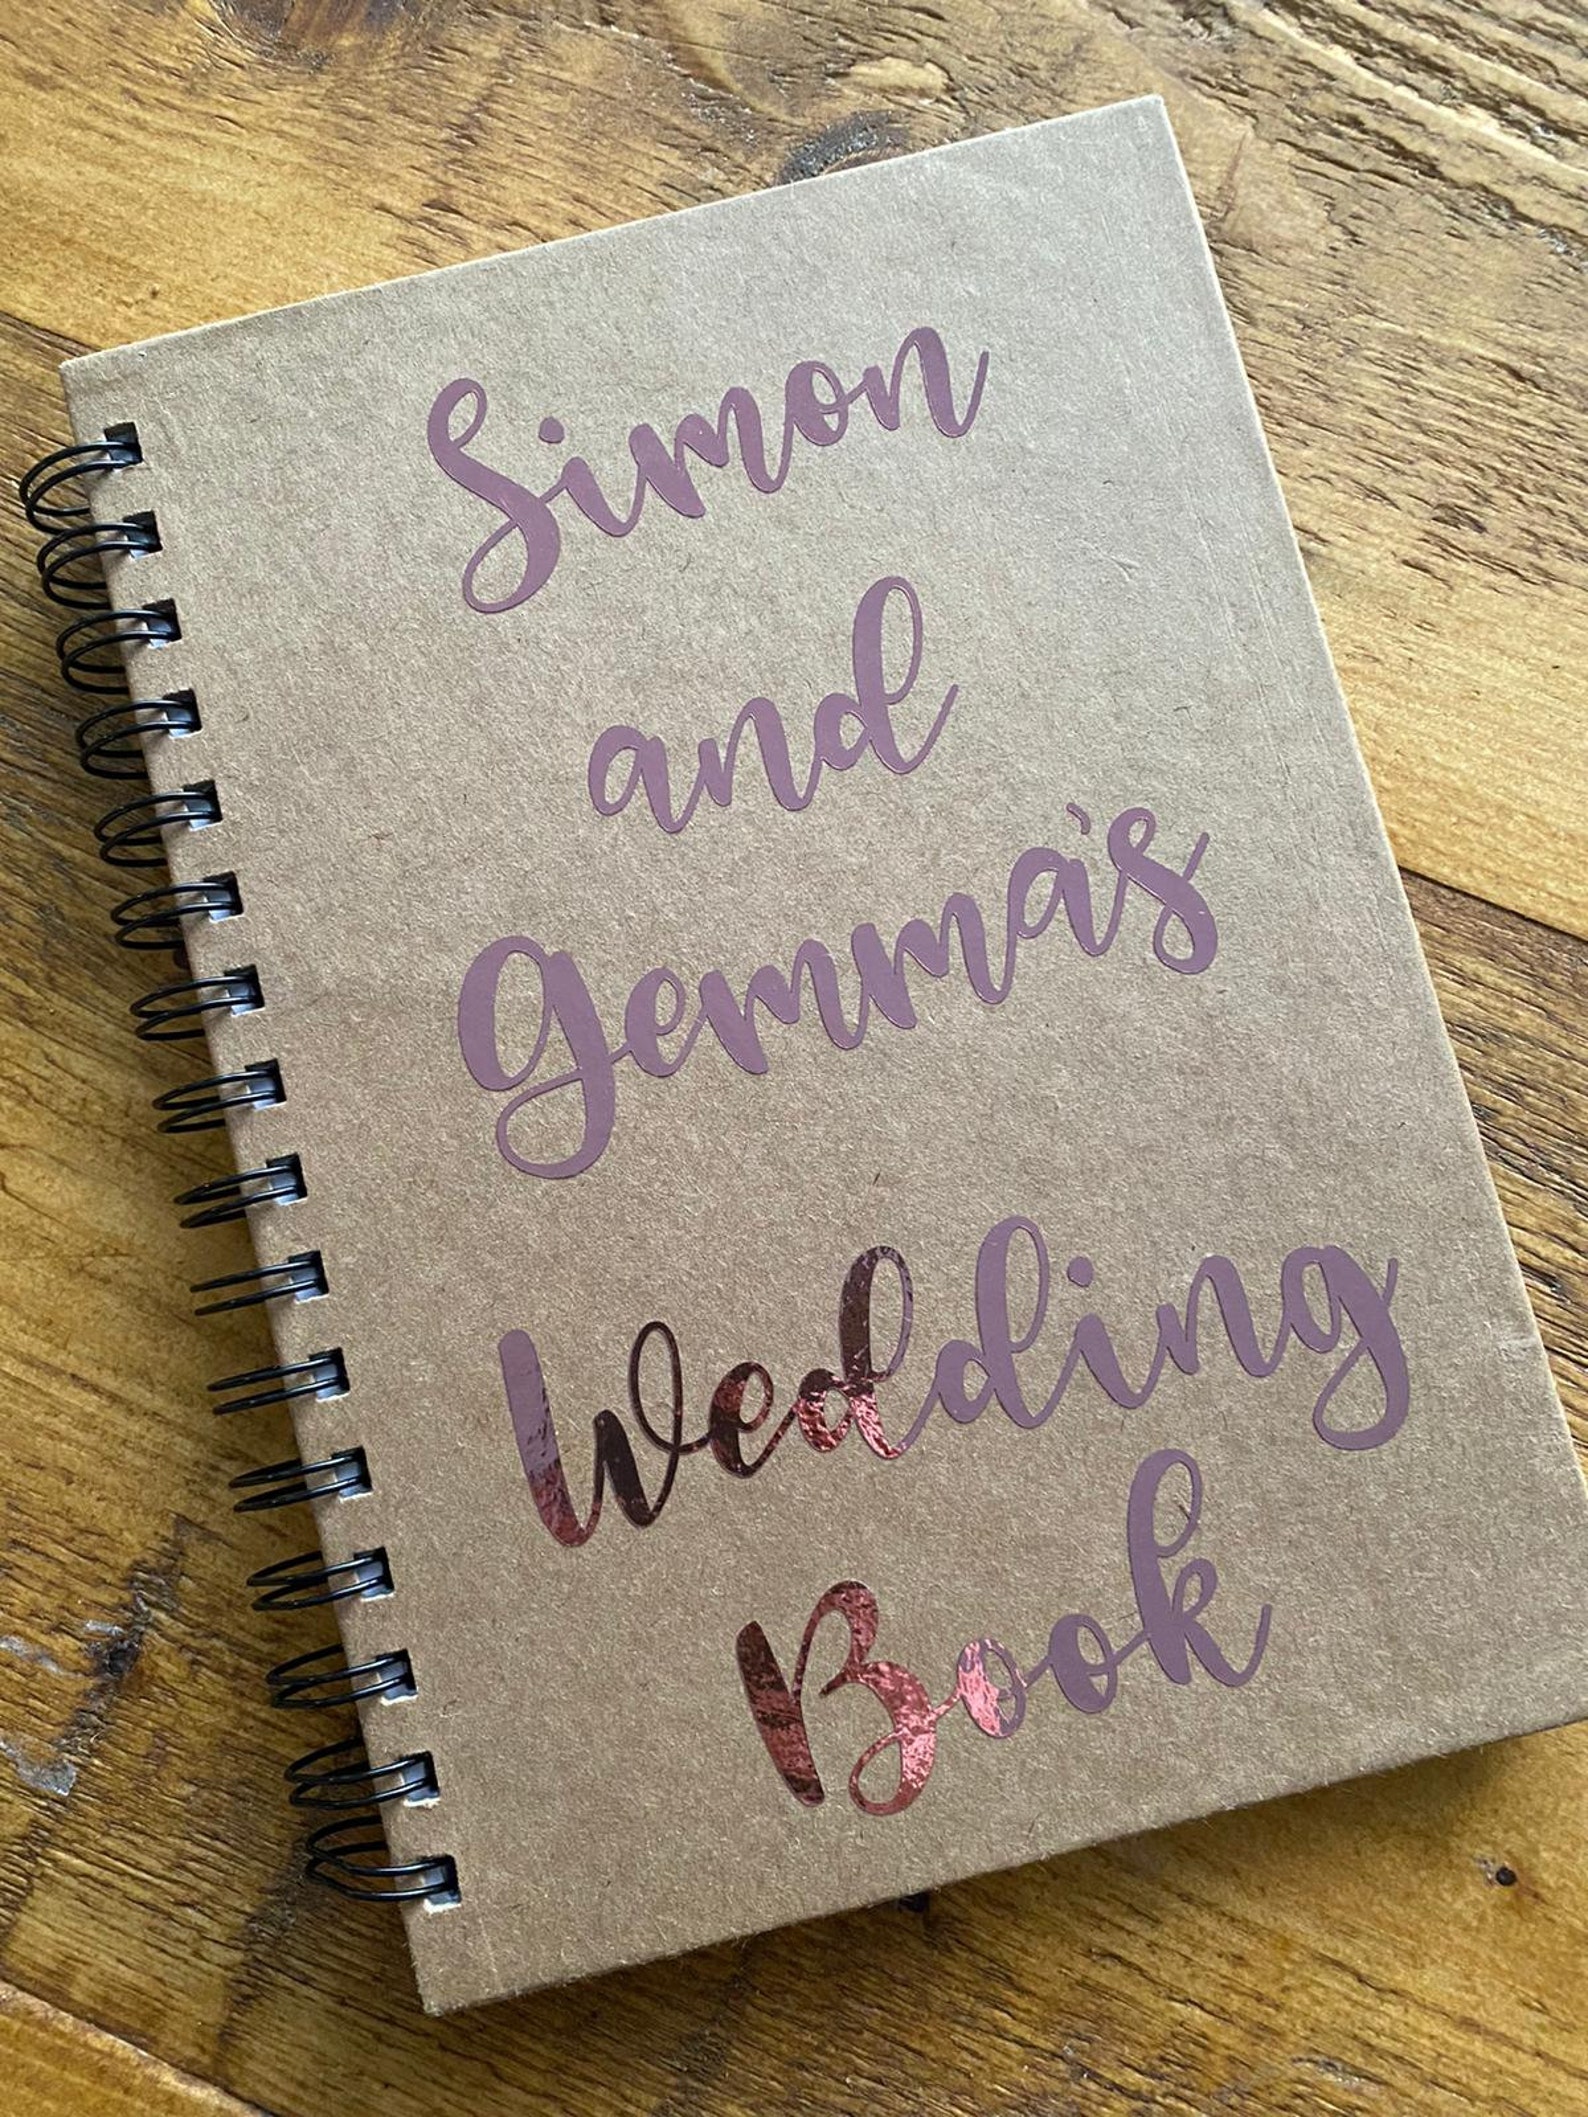 Simon
and
Gemma's
Wedding
Book